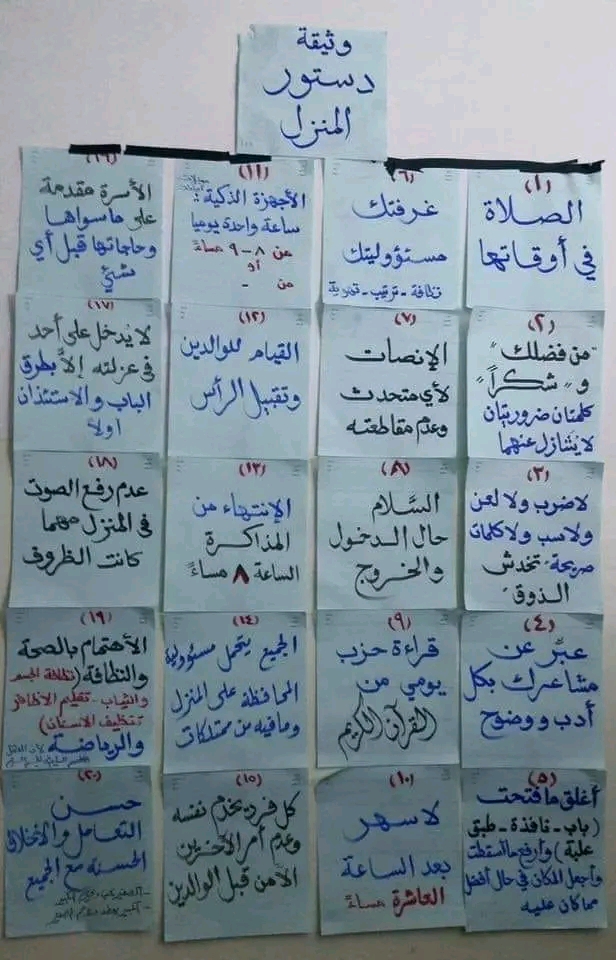 وثيقة
دستور
المنزل
(١)
الصلاة
في أوقاتها
(٢)
"من فضلك"
و "شكراً"
كلمتان ضروريتان
لا يتنازل عنهما
(٣)
لا ضرب ولا لعن
ولا سب ولا كلمات
صريحة تخدش
الذوق
(٤)
عبّر عن
مشاعرك بكل
أدب ووضوح
(٥)
أغلق ما فتحت
(باب - نافذة - طبق
علبة) وأرفع ما أسقطت
وأجعل المكان في حال أفضل
مما كان عليه
(٦)
غرفتك
مسئووليتك
نظافة - ترتيب - تهوية
(٧)
الإنصات
لأي متحدث
وعدم مقاطعته
(٨)
السَّلام
حال الدخول
والخروج
(٩)
قراءة حزب
يومي من
القرآن الكريم
(١٠)
لا سهر
بعد الساعة
العاشرة مساءً
(١١)
الأجهزة الذكية:
ساعة واحدة يوميا
من ٨ - ٩ مساءً
أو
من -
(١٢)
القيام للوالدين
وتقبيل الرأس
(١٣)
الإنتهاء من
المذاكرة
الساعة ٨ مساءً
(١٤)
الجميع يتحمل مسئوولية
المحافظة على المنزل
وما فيه من ممتلكات
(١٥)
كل فرد يخدم نفسه
وعدم أمر الآخرين
الا من قبل الوالدين
(١٦)
الأسرة مقدمة
على ما سواها
وحاجاتها قبل أي
شئ
(١٧)
لا يدخل على أحد
في عزلته إلا بطرق
الباب والاستئذان
اولاً
(١٨)
عدم رفع الصوت
في المنزل مهما
كانت الظروف
(١٩)
الأهتمام بالصحة
والنظافة (نظافة الجسم
والثياب - تقليم الأظافر
تنظيف الاسنان)
والرياضة
(٢٠)
حسن
التعامل والأخلاق
الحسنه مع الجميع